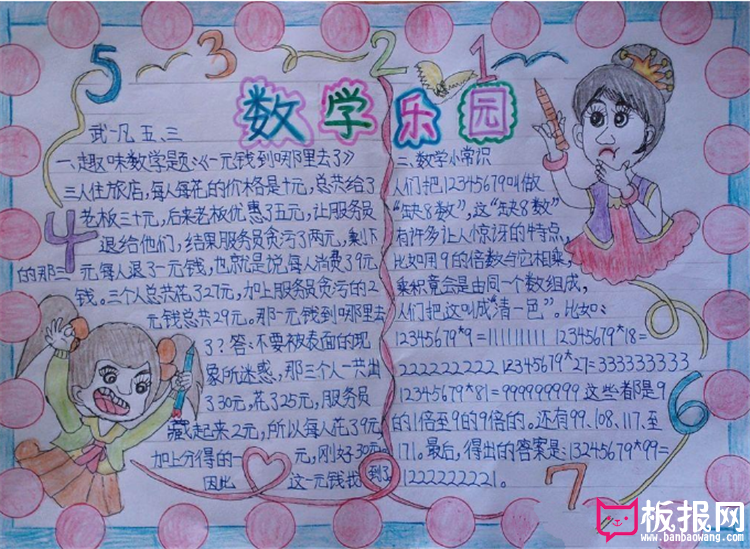 5 3 2 1
数学乐园
武一凡 五、三
一、趣味数学题:《一元钱到哪里去了》
三人住旅店,每人每花的价格是十元,总共给了
老板三十元,后来老板优惠了五元,让服务员
退给他们,结果服务员贪污了两元,剩下
的那三元每人退了一元钱,也就是说每人消费了9元
钱。三个人总共花了27元,加上服务员贪污的2
元钱总共29元。那一元钱到哪里去
了?答:不要被表面的现
象所迷惑,那三个人一共出
了30元,花了25元,服务员
藏起来2元,所以每人花了9元
加上分得的一元,刚好30元。
因此这一元钱找到了
4
二、数学小常识
人们把12345679叫做
“缺8数”,这“缺8数”
有许多让人惊讶的特点,
比如用9的倍数与它相乘,
乘积竟会是由同一个数组成,
人们把这叫成“清一色”。比如:
12345679*9=111111111 12345679*18=
222222222 12345679*27=333333333
12345679*81=999999999 这些都是9
的1倍至9的9倍的。还有99、108、117、至
171。最后,得出的答案是:13245679*99=
1222222221。
6
7
板报网
www.banbaowang.com